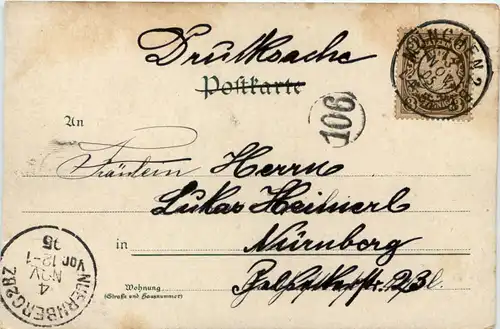 Drucksache
Postkarte
MÜNCHEN 2
BAYERN
13 NOV
106
An
Fräulein Herrn
Lukas Heinerl
in Nürnberg
Wohnung
(Straße und Hausnummer)
str. 23 I.
NUERNBERG 2 BZ
4 NOV
Vor 12-1
95